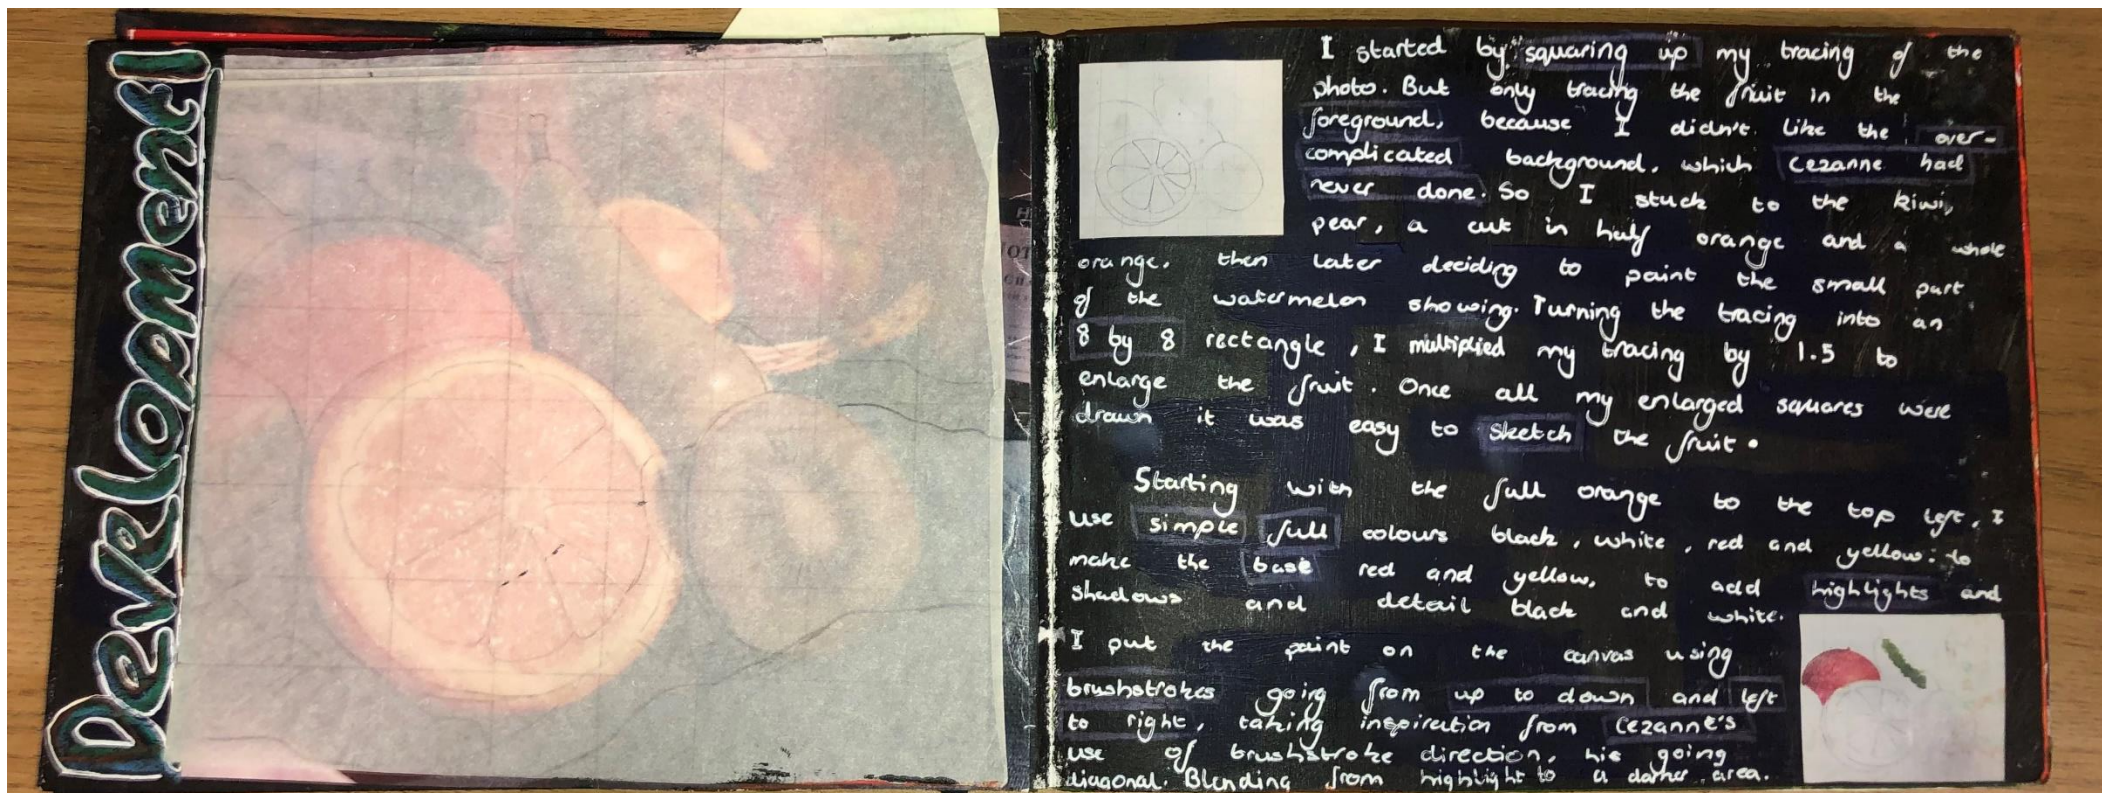 Development
I started by squaring up my tracing of the
photo. But only tracing the fruit in the
foreground, because I didn't like the over-
complicated background, which Cezanne had
never done. So I stuck to the kiwi,
pear, a cut in half orange and a whole
orange, then later deciding to paint the small part
of the watermelon showing. Turning the tracing into an
8 by 8 rectangle, I multiplied my tracing by 1.5 to
enlarge the fruit. Once all my enlarged squares were
drawn it was easy to sketch the fruit.
Starting with the full orange to the top left, I
use simple full colours black, white, red and yellow: to
make the base red and yellow, to add highlights and
shadows and detail black and white.
I put the paint on the canvas using
brushstrokes going from up to down and left
to right, taking inspiration from Cezanne's
use of brushstroke direction, his going
diagonal. Blending from highlight to a darker area.